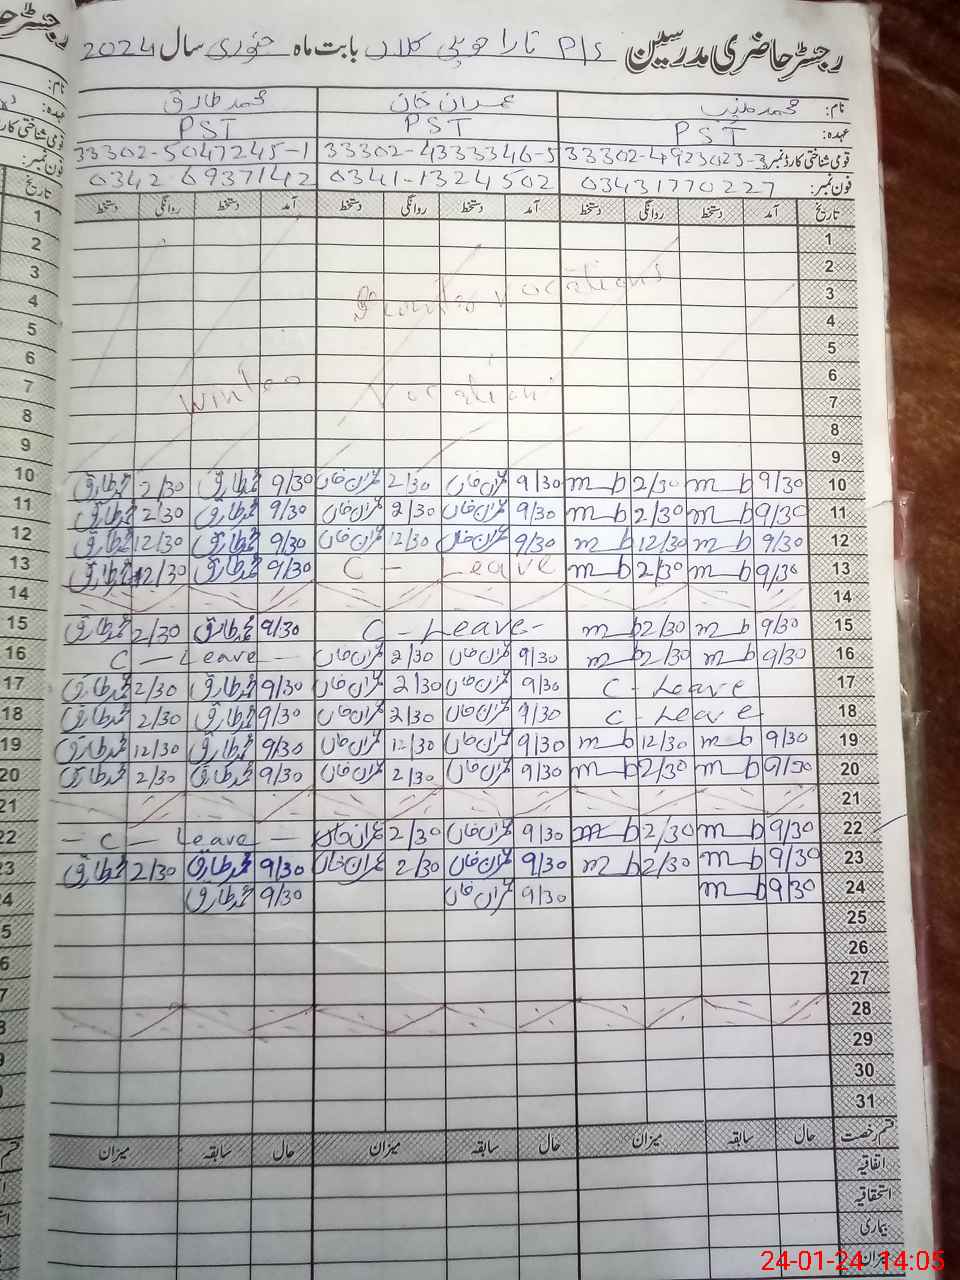 رجسٹر حاضری مدرسین P/S تارا حویلی کلاں بابت ماہ جنوری سال 2024
نام: محمد منیب عمران خان محمد طارق
عہدہ: PST PST PST
قومی شناختی کارڈ نمبر 33302-4923023-3 33302-4333346-5 33302-5047245-1
فون نمبر: 03431770227 0341-1324502 0342-6937142
تاریخ آمد دستخط روانگی دستخط آمد دستخط روانگی دستخط آمد دستخط روانگی دستخط
1
2
3 Winter Vocations
4
5
6
7 Winter Vocation
8
9
10 9/30 m b 2/30 m b 9/30 عمران خان 2/30 عمران خان 9/30 محمد طارق 2/30 محمد طارق
11 9/30 m b 2/30 m b 9/30 عمران خان 2/30 عمران خان 9/30 محمد طارق 2/30 محمد طارق
12 9/30 m b 12/30 m b 9/30 عمران خان 12/30 عمران خان 9/30 محمد طارق 12/30 محمد طارق
13 9/30 m b 2/30 m b C - Leave 9/30 محمد طارق 12/30 محمد طارق
14
15 9/30 m b 2/30 m b C - Leave - 9/30 محمد طارق 2/30 محمد طارق
16 9/30 m b 2/30 m b 9/30 عمران خان 2/30 عمران خان C — Leave —
17 C - Leave 9/30 عمران خان 2/30 عمران خان 9/30 محمد طارق 2/30 محمد طارق
18 C - Leave 9/30 عمران خان 2/30 عمران خان 9/30 محمد طارق 2/30 محمد طارق
19 9/30 m b 12/30 m b 9/30 عمران خان 12/30 عمران خان 9/30 محمد طارق 12/30 محمد طارق
20 9/30 m b 2/30 m b 9/30 عمران خان 2/30 عمران خان 9/30 محمد طارق 2/30 محمد طارق
21
22 9/30 m b 2/30 m b 9/30 عمران خان 2/30 عمران خان — C — Leave —
23 9/30 m b 2/30 m b 9/30 عمران خان 2/30 عمران خان 9/30 محمد طارق 2/30 محمد طارق
24 9/30 m b 9/30 عمران خان 9/30 محمد طارق
25
26
27
28
29
30
31
قسم رخصت حال سابقہ میزان حال سابقہ میزان حال سابقہ میزان
اتفاقیہ
استحقاقیہ
بیماری
میزان
24-01-24 14:05